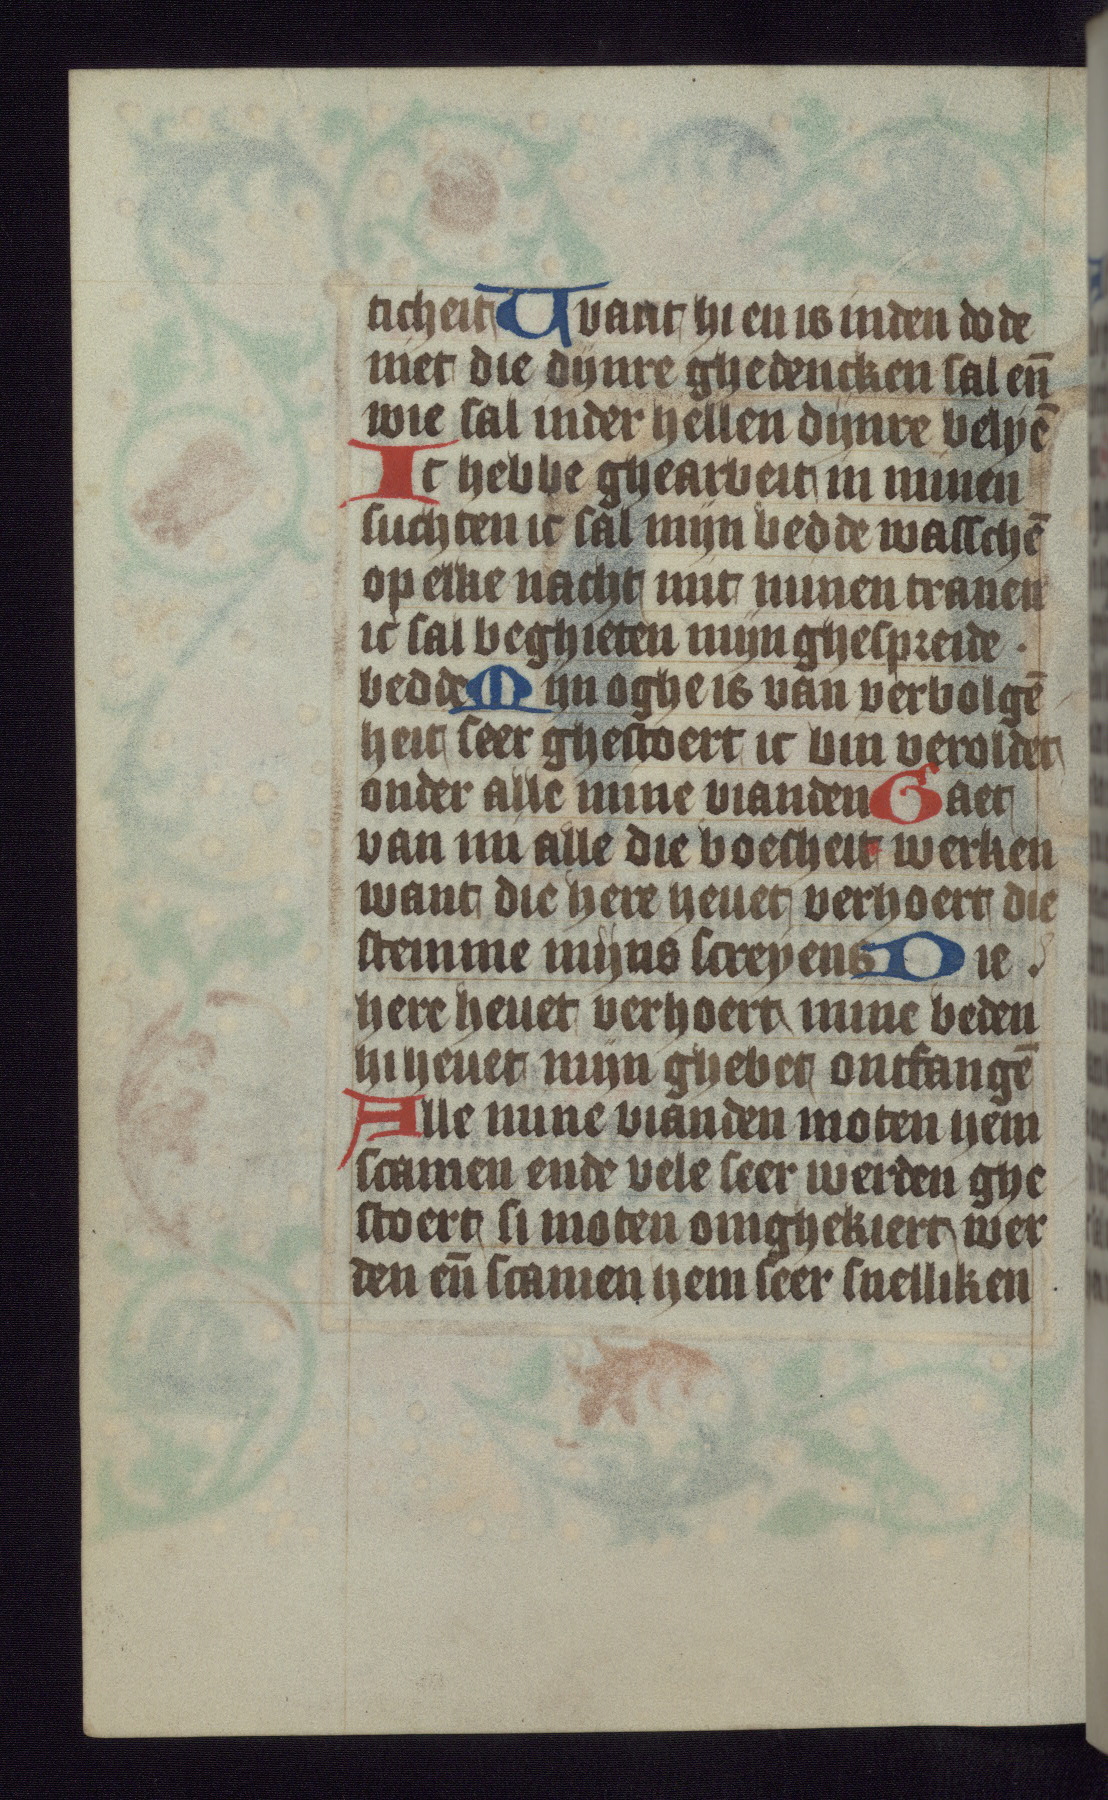 ticheit Uvant hi en is in den dode
niet die dijnre ghedencken sal en̄
wie sal in der hellen dijnre belyē
Ic hebbe ghearbeit in minen
suchten ic sal mijn bedde wasschē
op elke nacht mit minen tranen
ic sal beghieten mijn ghespreide .
bedde Mijn oghe is van verbolgē
heit seer ghestoert ic bin veroldet
onder alle mine vianden Gaet
van mi alle die boesheit werken
want die here hevet verhoert die
stemme mijns screyens Die .
here hevet verhoert mine beden
hi hevet mijn ghebet ontfangē
Alle mine vianden moten hem
scamen ende vele seer werden ghe
stoert si moten omghekiert wer
den en̄ scamen hem seer snelliken